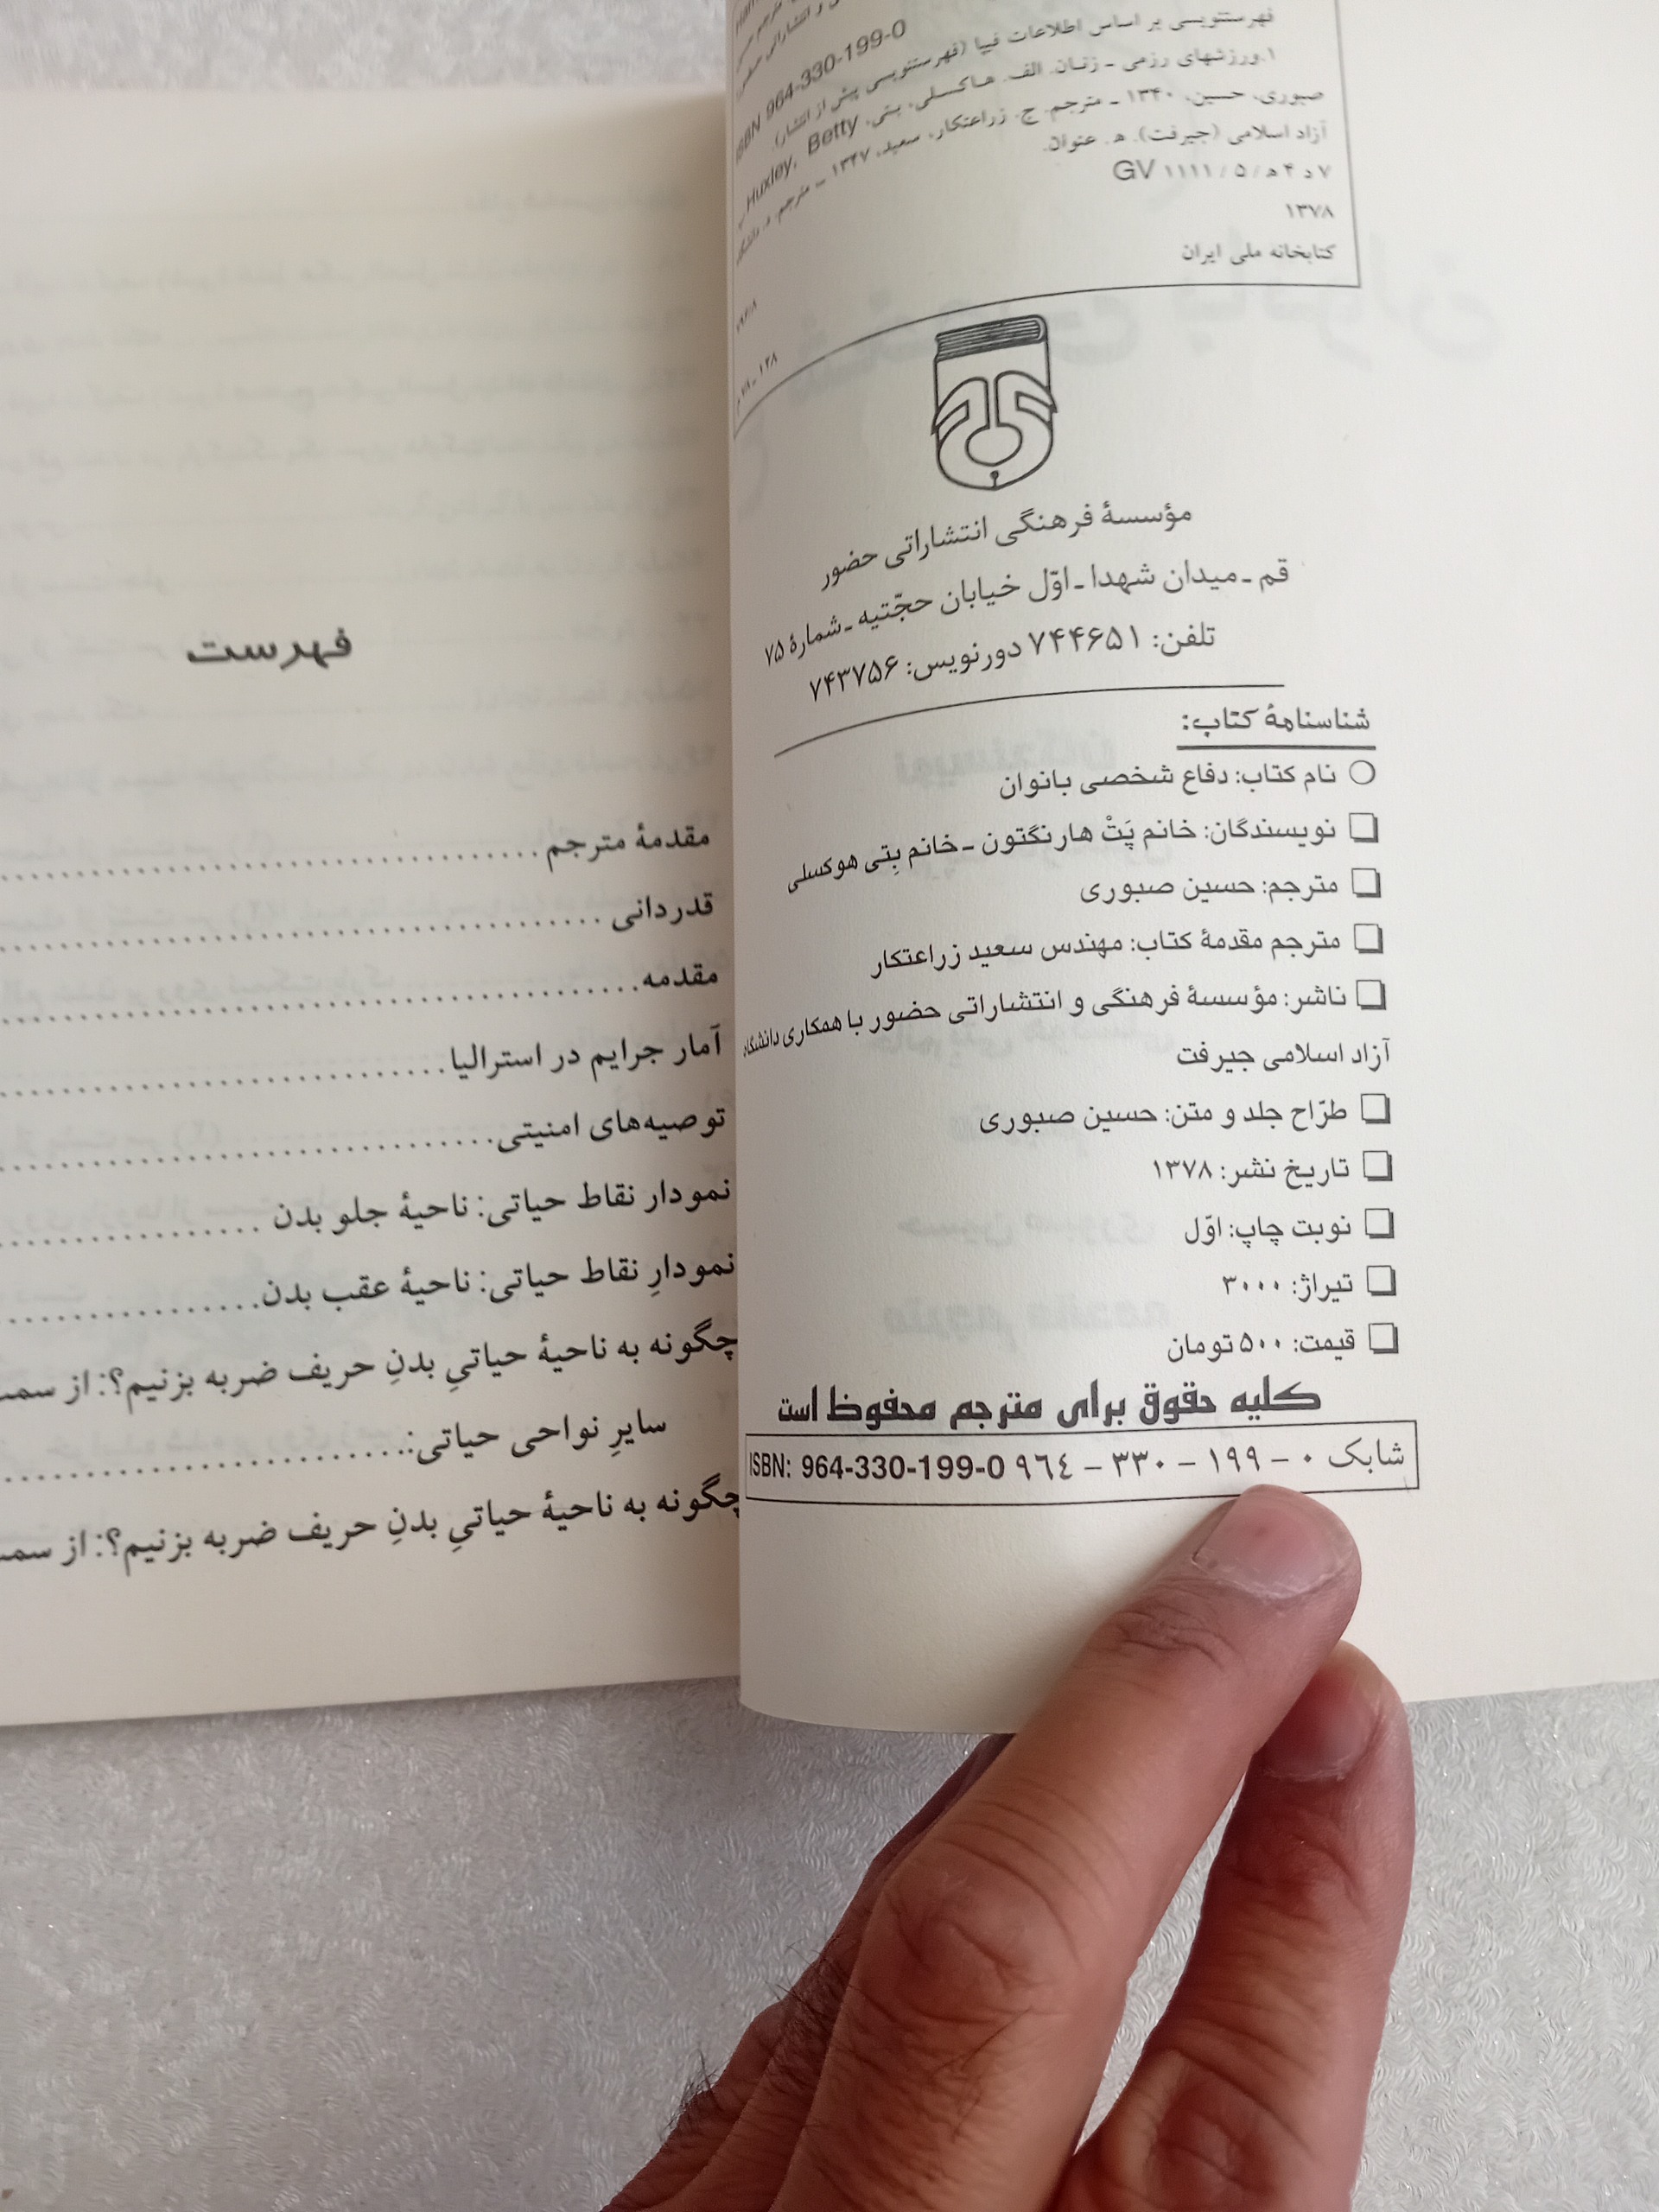 ISBN 964-330-199-0
فهرستنویسی بر اساس اطلاعات فیپا (فهرستنویسی پیش از انتشار).
۱.ورزشهای رزمی ـ زنان. الف. هاکسلی، بتی، Huxley, Betty
صبوری، حسین، ۱۳۴۰ ـ مترجم. ج. زراعتکار، سعید، ۱۳۴۷ ـ مترجم. د. دانشگاه
آزاد اسلامی (جیرفت). ه‍. عنوان.
۷ د ۴ ه‍ / ۵ / ۱۱۱۱ GV
۱۳۷۸
کتابخانه ملی ایران
مؤسسهٔ فرهنگی انتشاراتی حضور
قم ـ میدان شهدا ـ اوّل خیابان حجّتیه ـ شمارهٔ ۷۵
تلفن: ۷۴۴۶۵۱ دورنویس: ۷۴۳۷۵۶
شناسنامهٔ کتاب:
نام کتاب: دفاع شخصی بانوان
نویسندگان: خانم پَتْ هارنگتون ـ خانم بِتی هوکسلی
مترجم: حسین صبوری
مترجم مقدمهٔ کتاب: مهندس سعید زراعتکار
ناشر: مؤسسهٔ فرهنگی و انتشاراتی حضور با همکاری دانشگاه
آزاد اسلامی جیرفت
طرّاح جلد و متن: حسین صبوری
تاریخ نشر: ۱۳۷۸
نوبت چاپ: اوّل
تیراژ: ۳۰۰۰
قیمت: ۵۰۰ تومان
کلیه حقوق برای مترجم محفوظ است
شابک ۰ – ۱۹۹ – ۳۳۰ – ۹٦٤ ISBN: 964-330-199-0
فهرست
مقدمهٔ مترجم
قدردانی
مقدمه
آمار جرایم در استرالیا
توصیه‌های امنیتی
نمودار نقاط حیاتی: ناحیهٔ جلو بدن
نمودارِ نقاط حیاتی: ناحیهٔ عقب بدن
چگونه به ناحیهٔ حیاتیِ بدنِ حریف ضربه بزنیم؟: از سمت
سایرِ نواحی حیاتی:
چگونه به ناحیهٔ حیاتیِ بدنِ حریف ضربه بزنیم؟: از سمت